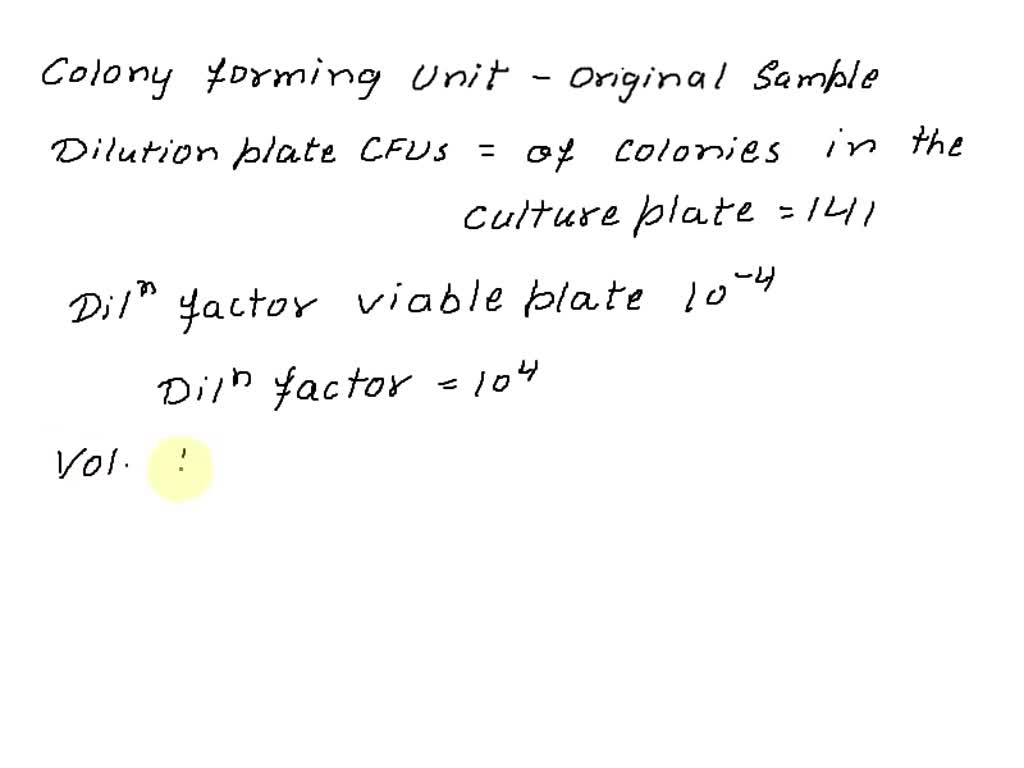 Colony forming Unit - Original Sample
Dilution plate CFUs = of colonies in the
culture plate = 141
Dilⁿ factor viable plate 10⁻⁴
Dilⁿ factor = 10⁴
Vol.